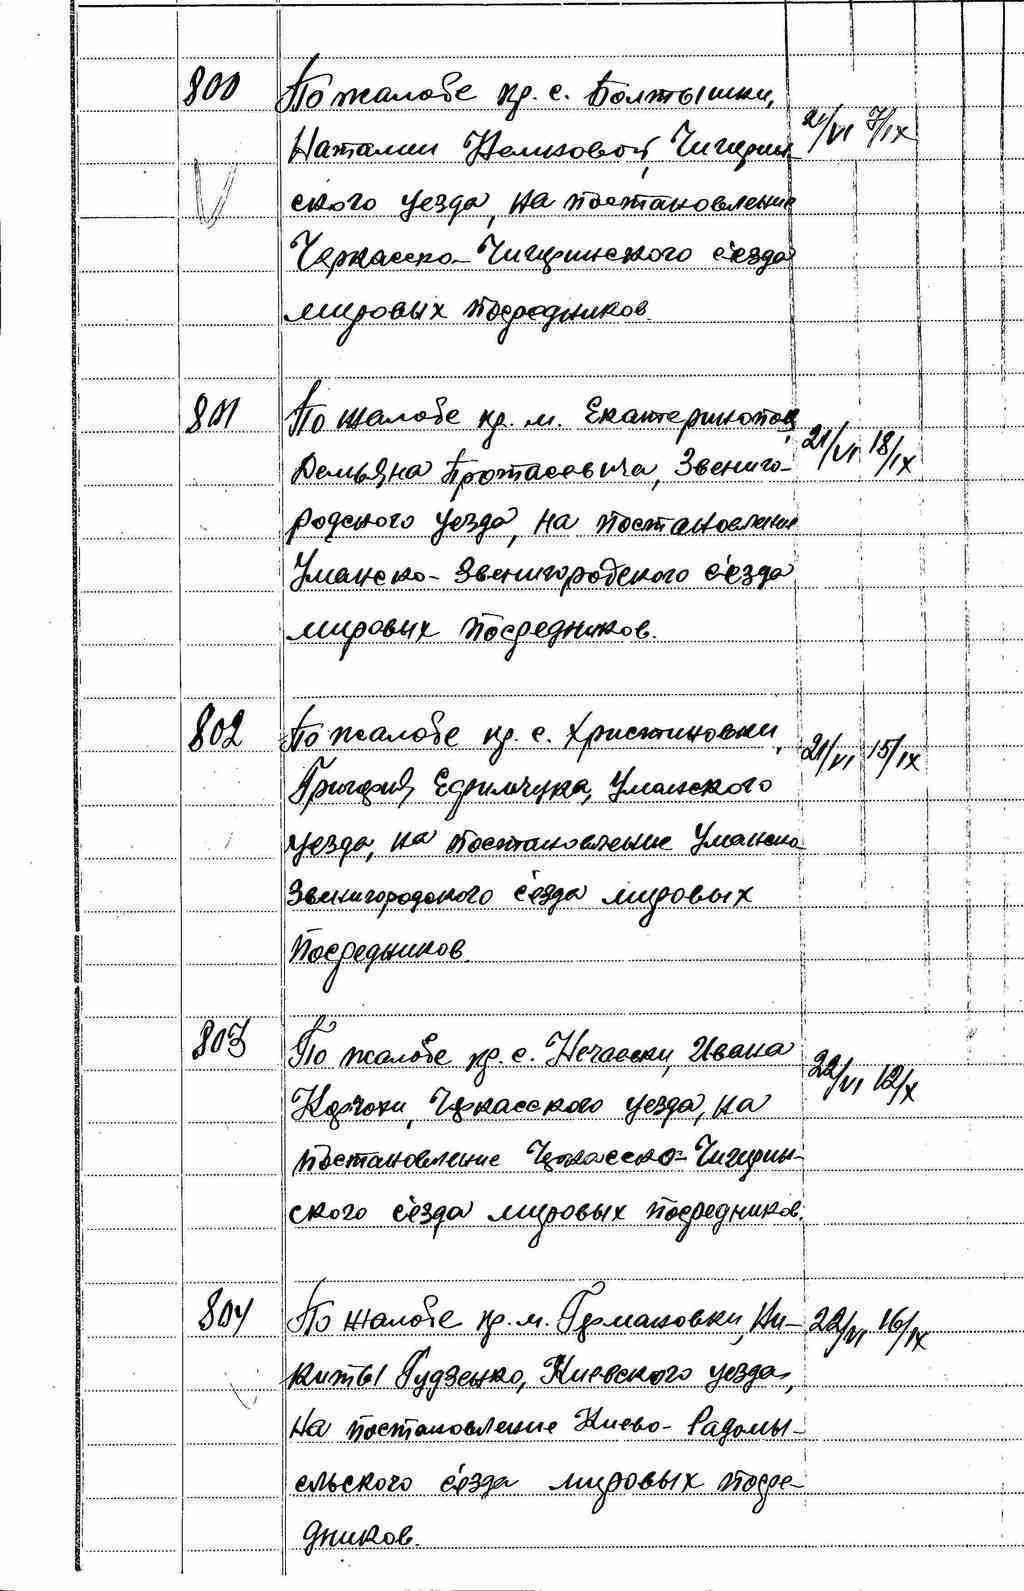 800 По жалобе кр. с. Болтышки,
Наталии Чигирин- 21/VI 7/IX
ского уезда, на постановление
Черкасско-Чигиринского с'езда
мировых посредников.
801 По жалобе кр. м. Екатеринополь,
Демьяна Протасевича, Звениго- 21/VI 18/IX
родского уезда, на постановление
Уманско-Звенигородского с'езда
мировых посредников.
802 По жалобе кр. с. Христиновки,
Григория Ефимчука, Уманского 21/VI 15/IX
уезда, на постановление Уманско-
Звенигородского с'езда мировых
посредников.
803 По жалобе кр. с. Нечаевки, Ивана
Черкасского уезда, на 22/VI 12/X
постановление Черкасско-Чигирин-
ского с'езда мировых посредников.
804 По жалобе кр. м. Германовки, Ни- 22/VI 16/IX
киты Гудзенко, Киевского уезда,
на постановление Киево-Радомы-
сльского с'езда мировых посре-
дников.